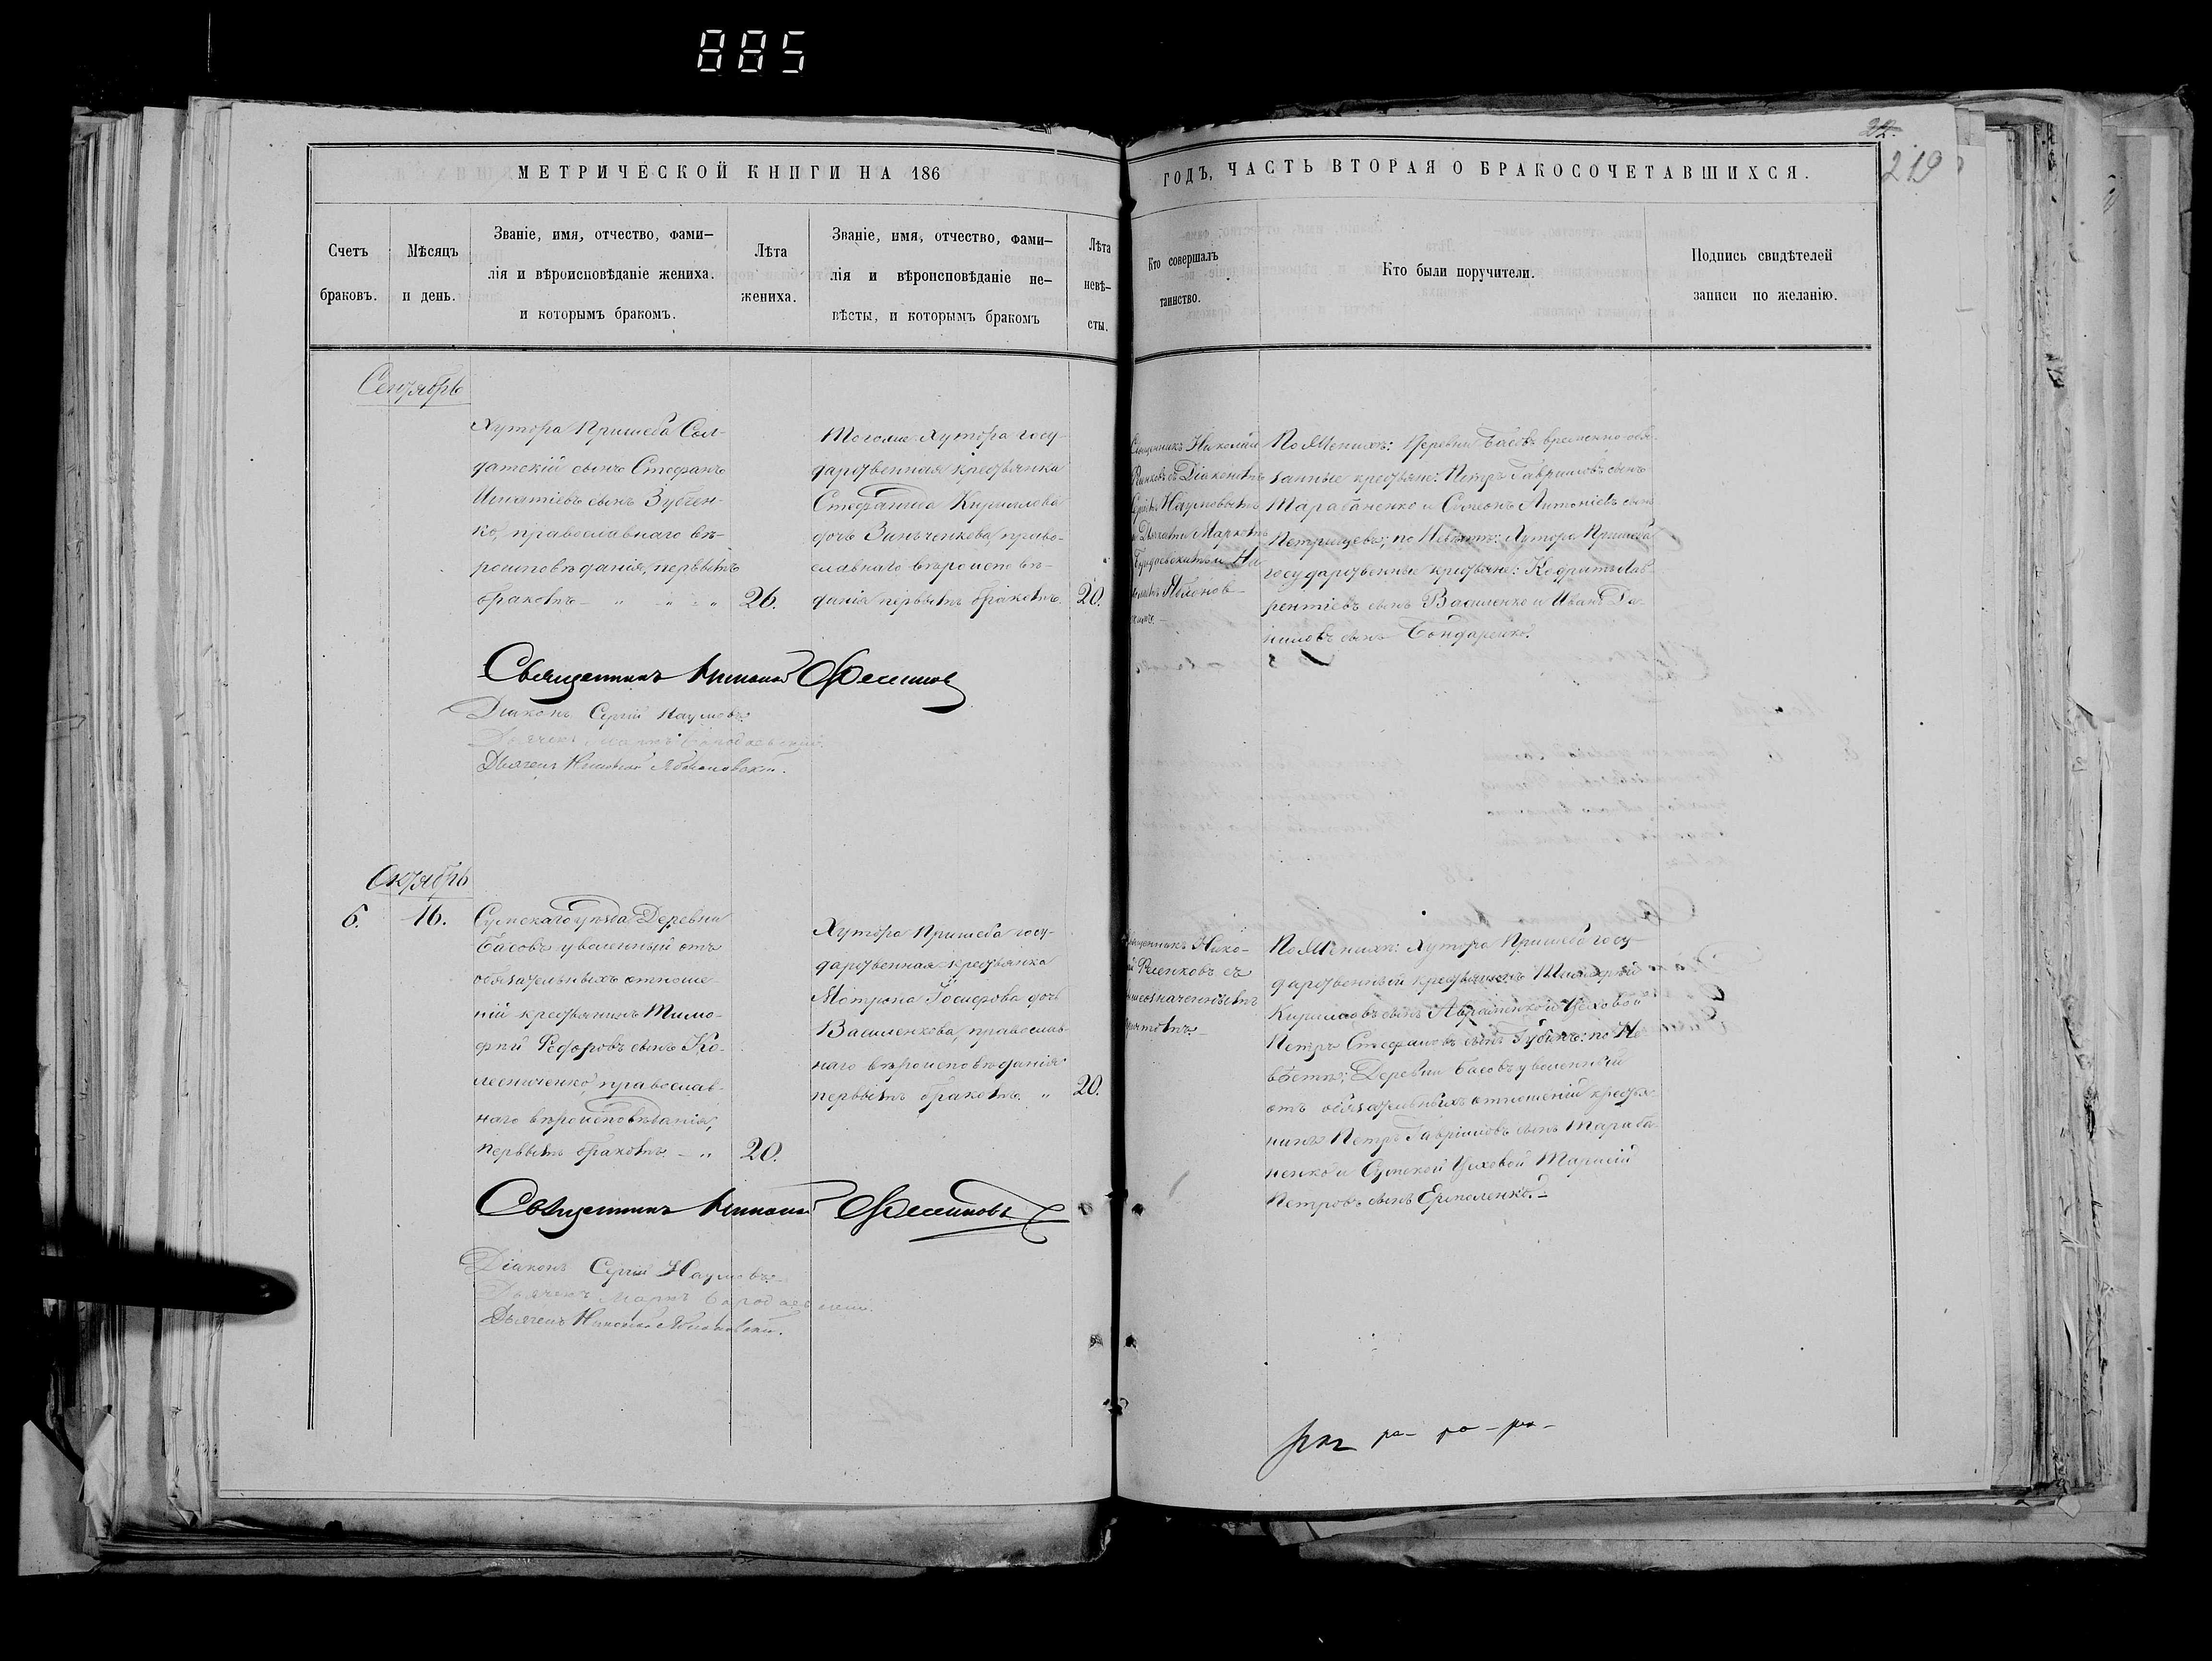 885
22.
219
МЕТРИЧЕСКОЙ КНИГИ НА 186
ГОДЪ, ЧАСТЬ ВТОРАЯ О БРАКОСОЧЕТАВШИХСЯ.
Счетъ
браковъ.
Мѣсяцъ
и день.
Званіе, имя, отчество, фами-
лія и вѣроисповѣданіе жениха.
и которымъ бракомъ.
Лѣта
жениха.
Званіе, имя, отчество, фами-
лія и вѣроисповѣданіе не-
вѣсты, и которымъ бракомъ
Лѣта
невѣ-
сты.
Кто совершалъ
таинство.
Кто были поручители.
Подпись свидѣтелей
записи по желанію.
Сентябрь
Хутора Пришеба Сол-
датскій сынъ Стефанъ
Игнатіевъ сынъ Зубчен-
ко, православнаго вѣ-
роисповѣданія, первымъ
бракомъ
26.
Тогоже Хутора госу-
дарственная крестьянка
Стефанида Кириллова
дочь Зинченкова, право-
славнаго вѣроисповѣ-
данія первымъ бракомъ.
20.
Священникъ Николай
съ Діакономъ
Сергіемъ Наумовымъ
и Дьячками Маркомъ
Яблонов-
По Женихѣ: Деревни Басовъ временно-обя-
занные крестьяне: Петръ Гавриловъ сынъ
Марабаненко и Симеонъ Антоніевъ сынъ
Петрищевъ; по Невѣстѣ: Хутора Пришеба
государственные крестьяне: Кодратъ Лав-
рентіевъ сынъ Василенко и Иванъ Да-
ниловъ сынъ Бондаренко.
Священникъ Николай
Діаконъ Сергій Наумовъ
Дьячекъ Николай Яблоновскій.
Октябрь
6.
16.
Сумскаго уѣзда Деревни
Басовъ уволенный отъ
обязательныхъ отноше-
ній крестьянинъ Тимо-
фей Федоровъ сынъ Ко-
лесниченко, православ-
наго вѣроисповѣданія,
первымъ бракомъ.
20.
Хутора Пришеба госу-
дарственная крестьянка
Мотрона Іосифова дочь
Василенкова, православ-
наго вѣроисповѣданія
первымъ бракомъ.
20.
Священникъ Нико-
лай съ
вышеозначеннымъ
причтомъ.
По Женихѣ: Хутора Пришеба госу-
дарственный крестьянинъ
Кирилловъ сынъ и Цеховой
Петръ Стефановъ сынъ Губинъ: по Не-
вѣстѣ: Деревни Басовъ уволенный
отъ обязательныхъ отношеній крестья-
нинъ Петръ Гавріиловъ сынъ Мараба-
ненко и Сумской Цеховой
Петровъ сынъ Ермоленко.
Священникъ Николай
Діаконъ Сергій Наумовъ
Дьячекъ Маркъ
Дьячекъ Николай Яблоновскій.